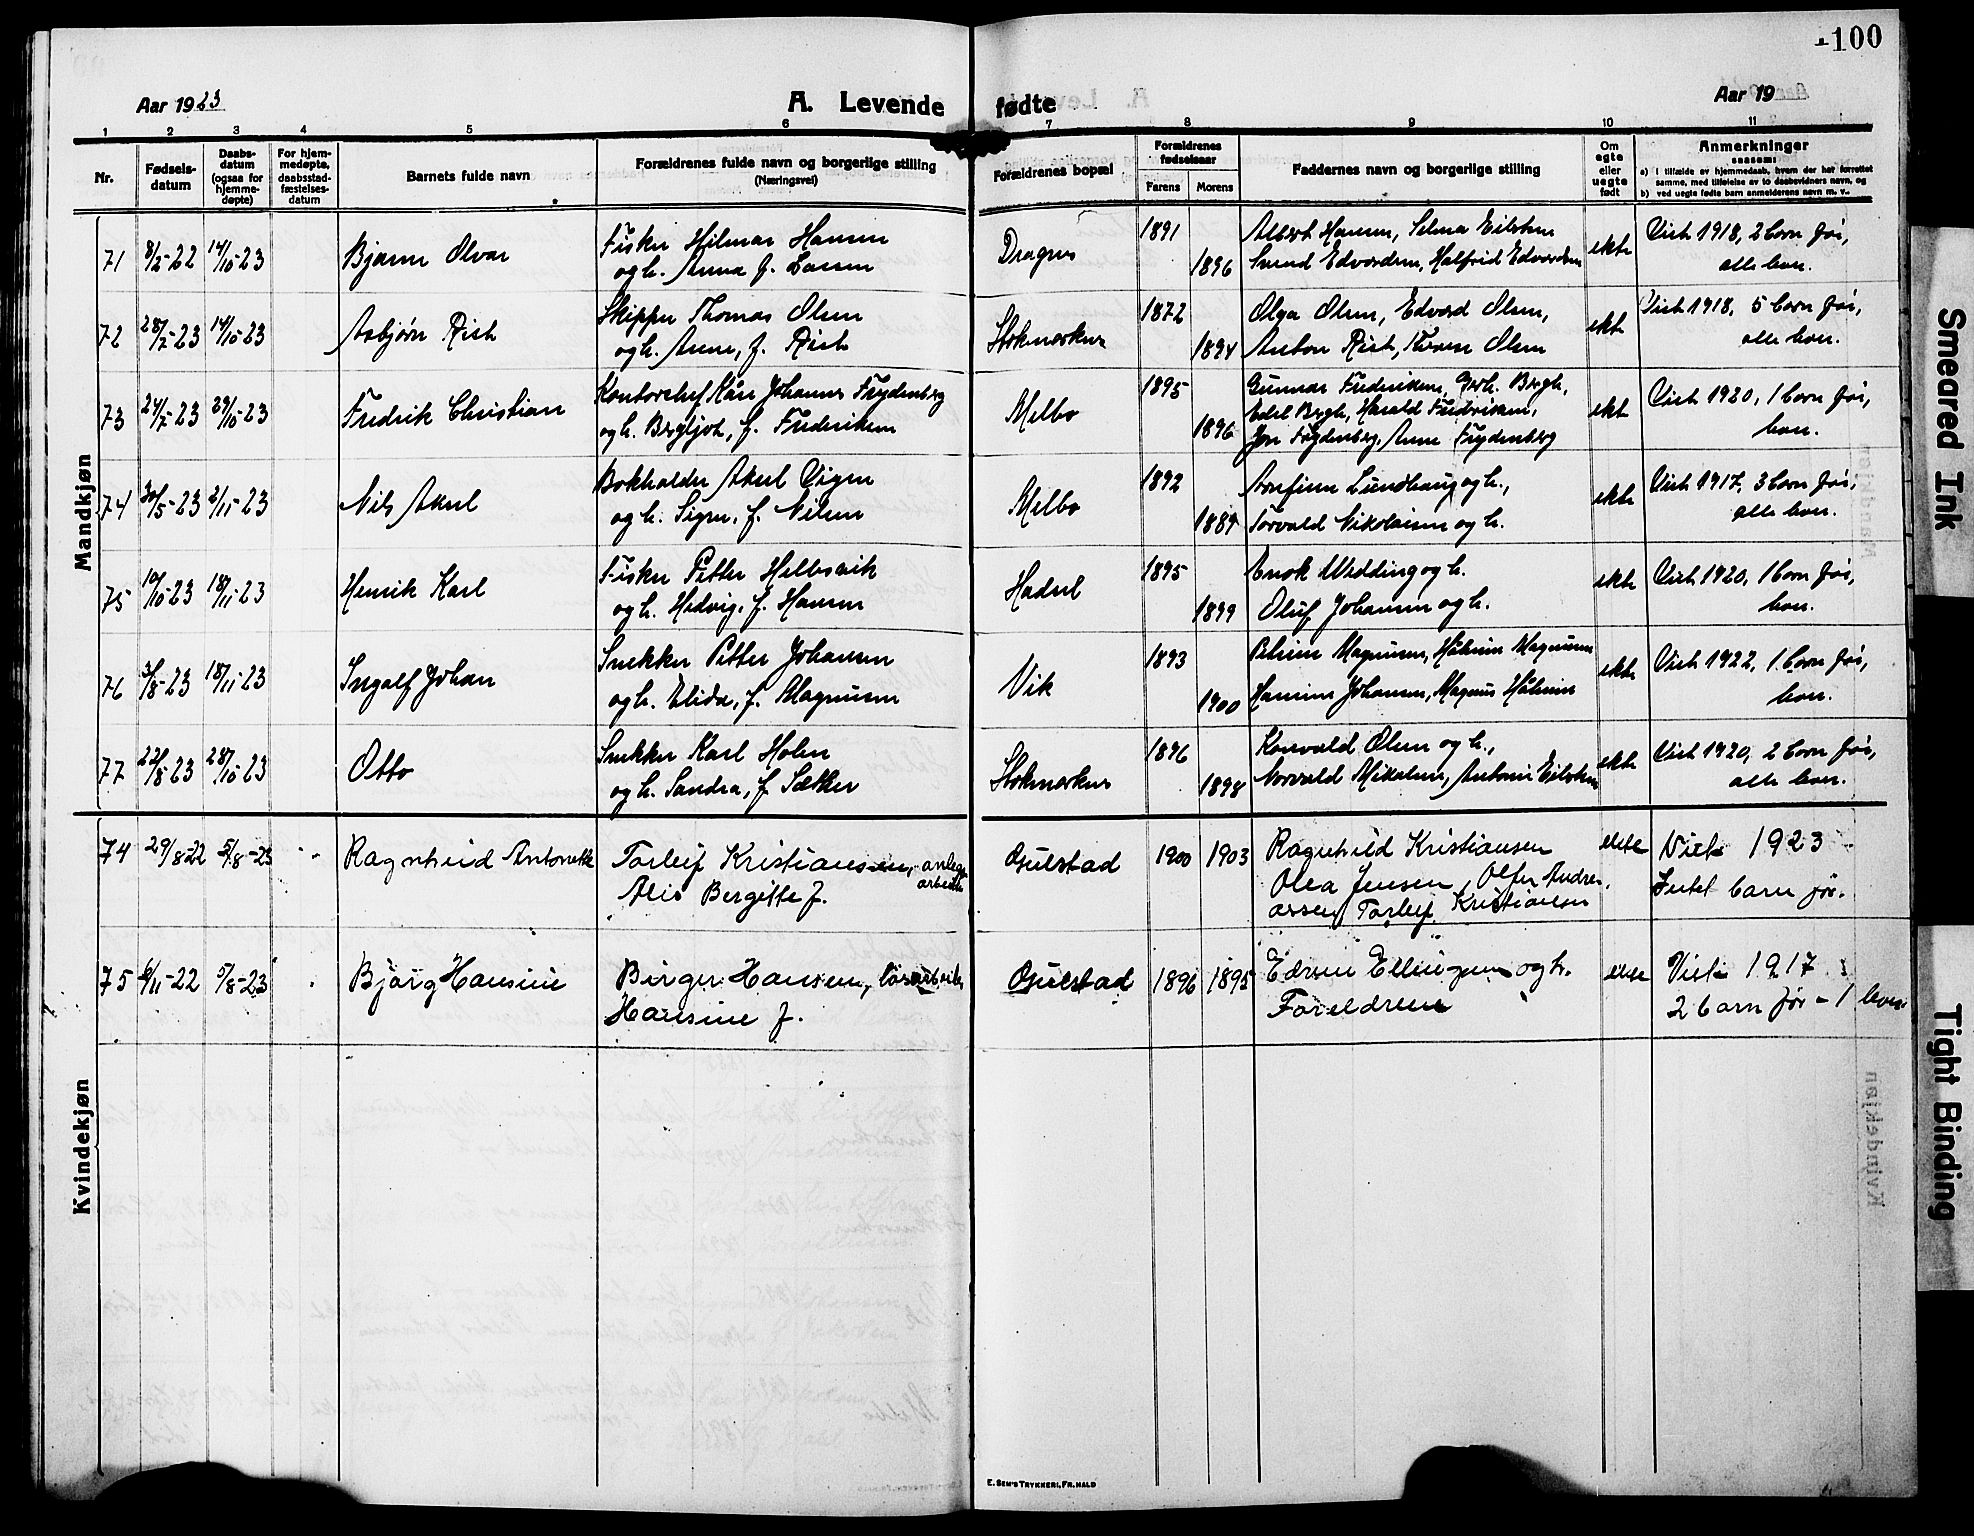 100
Aar 1923
A. Levende fødte
Aar 19
1 2 3 4 5 6 7 8 9 10 11
Nr.
Fødsels-
datum
Daabs-
datum
(ogsaa for
hjemme-
døpte)
For hjem-
medøpte,
daabsstad-
fæstelses-
datum
Barnets fulde navn
Forældrenes fulde navn og borgerlige stilling
(Næringsvei)
Forældrenes bopæl
Forældrenes
fødselsaar
Farens
Morens
Faddernes navn og borgerlige stilling
Om
egte
eller
uegte
født
Anmerkninger
saasom:
a) i tilfælde av hjemmedaab, hvem der har forrettet
samme, med tilføielse av to daabsvidners navn, og
b) ved uegte fødte barn anmelderens navn m. v.
Mandkjøn
71 8/2-22 14/10-23 Bjarne Olvar
Fisker Hilmar Hansen
og h. Anna f. Larsen
Dragnes 1891 1896
Albert Hansen, Selma Eilertsen
Svend Edvardsen, Halfrid Edvardsen
ekte
Viet 1918, 2 barn før,
alle lever.
72 28/7-23 14/10-23 Asbjørn Rist
Skipper Thomas Olsen
og h. Anne, f. Rist
Stokmarknes 1872 1894
Olga Olsen, Edvard Olsen,
Anton Rist, Olsen
ekte
Viet 1918, 5 barn før,
alle lever.
73 24/7-23 29/10-23 Fredrik Christian
Kontorchef Kåre Johannes Frydenberg
og h. Bergljot, f. Frederiksen
Melbo 1895 1896
Gunnar Frederiksen, Gerh. Bergh,
Edel Bergh, Harald Fredriksen,
Jon Frydenberg, Anne Frydenberg
ekte
Viet 1920, 1 barn før,
lever.
74 30/5-23 2/11-23 Nils Aksel
Bokholder Aksel Vigen
og h. Signe, f. Nilsen
Melbo 1892 1889
Arnfinn Lundhaug og h.,
Torvald Nikolaisen og h.
ekte
Viet 1917, 3 barn før,
alle lever.
75 10/10-23 18/11-23 Henrik Karl
Fisker Petter Hellesvik
og h. Hedvig, f. Hansen
Hadsel 1895 1899
Enok Widding og h.
Oluf Johansen og h.
ekte
Viet 1920, 1 barn før,
lever.
76 3/8-23 18/11-23 Ingolf Johan
Snekker Petter Johansen
og h. Elida, f. Magnusen
Vik 1893 1900
Petrine Magnusen, Magnusen
Hansine Johansen, Magnus
ekte
Viet 1922, 1 barn før,
lever.
77 22/8-23 28/10-23 Otto
Snekker Karl Holen
og h. Sandra, f. Sætter
Stokmarknes 1896 1898
Konvald Olsen og h.,
Norvald Mikalsen, Antonie Eilertsen
ekte
Viet 1920, 2 barn før,
alle lever.
Kvindekjøn
74 29/8-22 5/8-23 Ragnhild Antonette
Torleif Kristiansen, anlegs
arbeider
Alis Bergitte f.
Gulstad 1900 1903
Ragnhild Kristiansen
Olea Jensen, Olfer Andre-
assen, Torleif Kristiansen
ekte
Viet 1923
Intet barn før.
75 6/11-22 5/8-23 Bjørg Hansine
Birger Hansen, løsarbeider
Hansine f.
Gulstad 1896 1895
Edvin Ellingsen og h.
Foreldrene
ekte
Viet 1917
2 barn før - 1 lever
E. Sem's Trykkeri, Fr.hald
Smeared Ink
Tight Binding